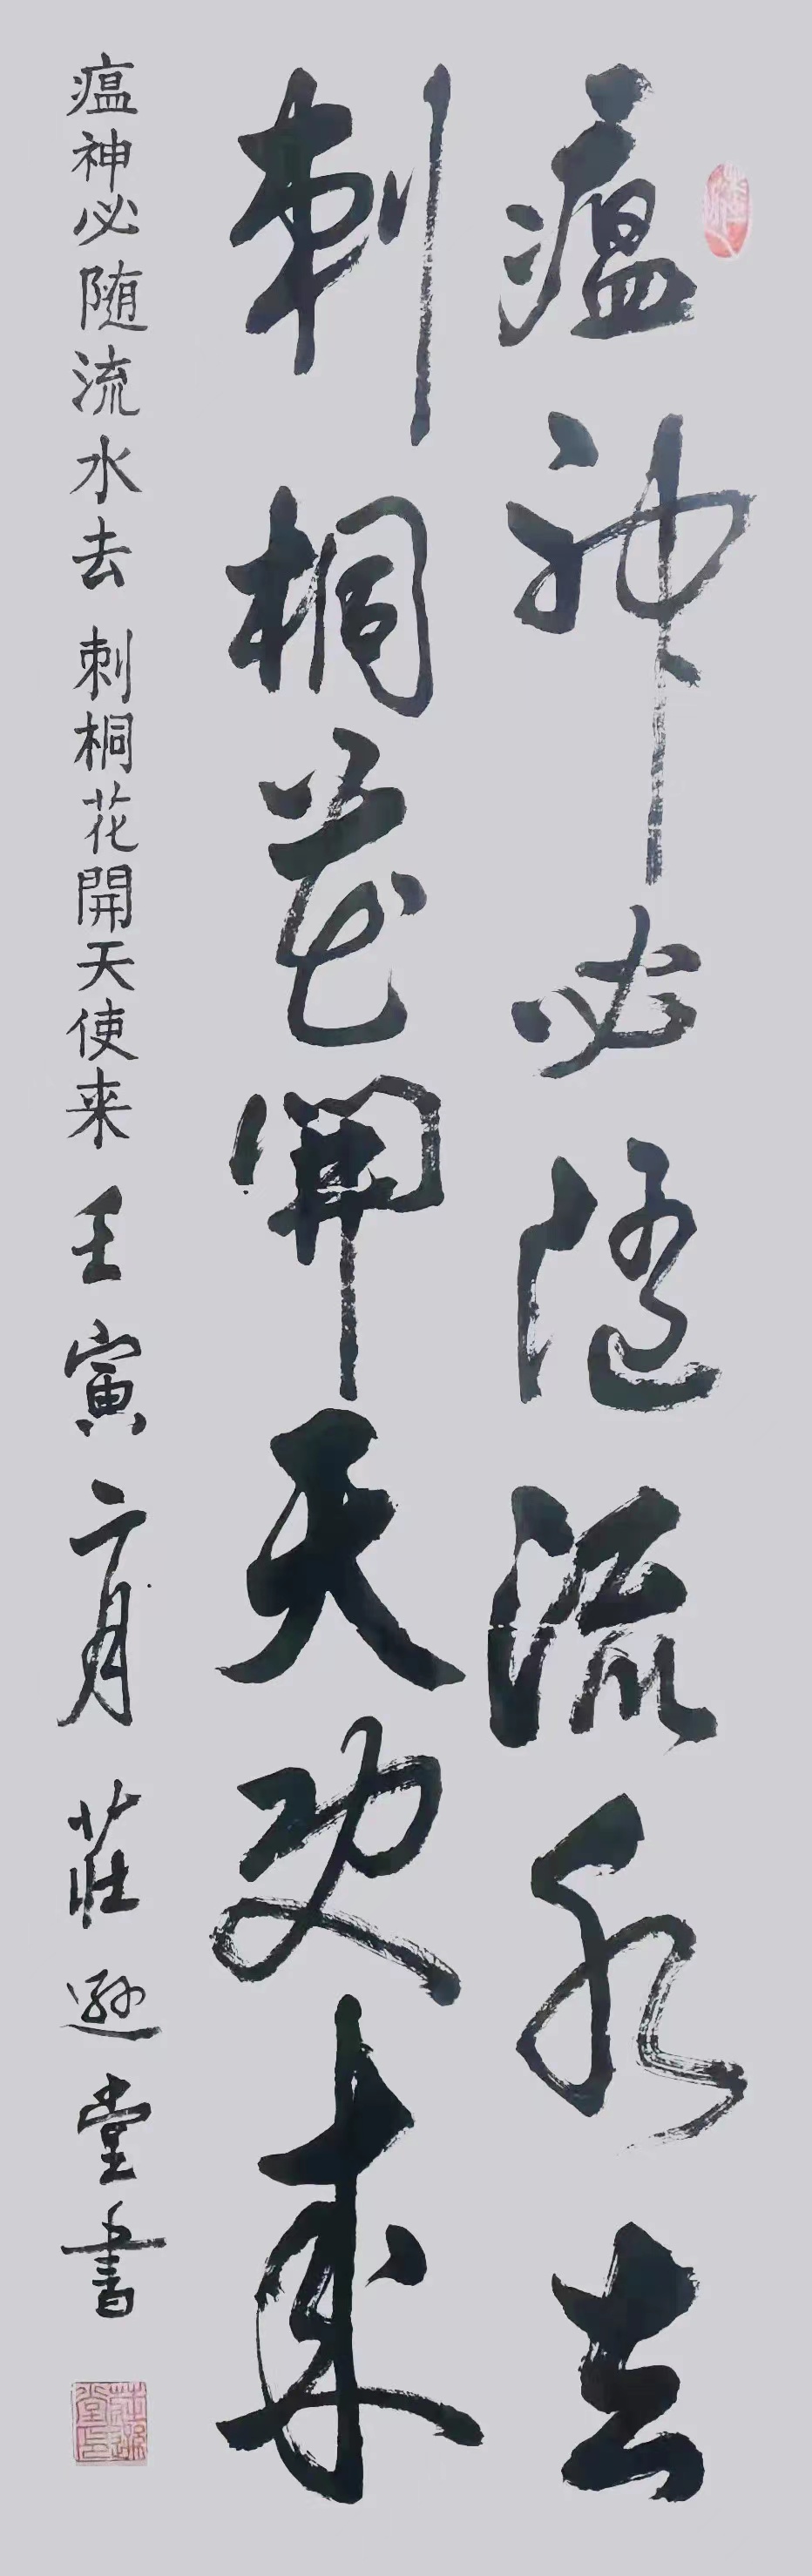 瘟神必随流水去
刺桐花開天使来
瘟神必随流水去 刺桐花開天使来 壬寅二月 莊遜堂書